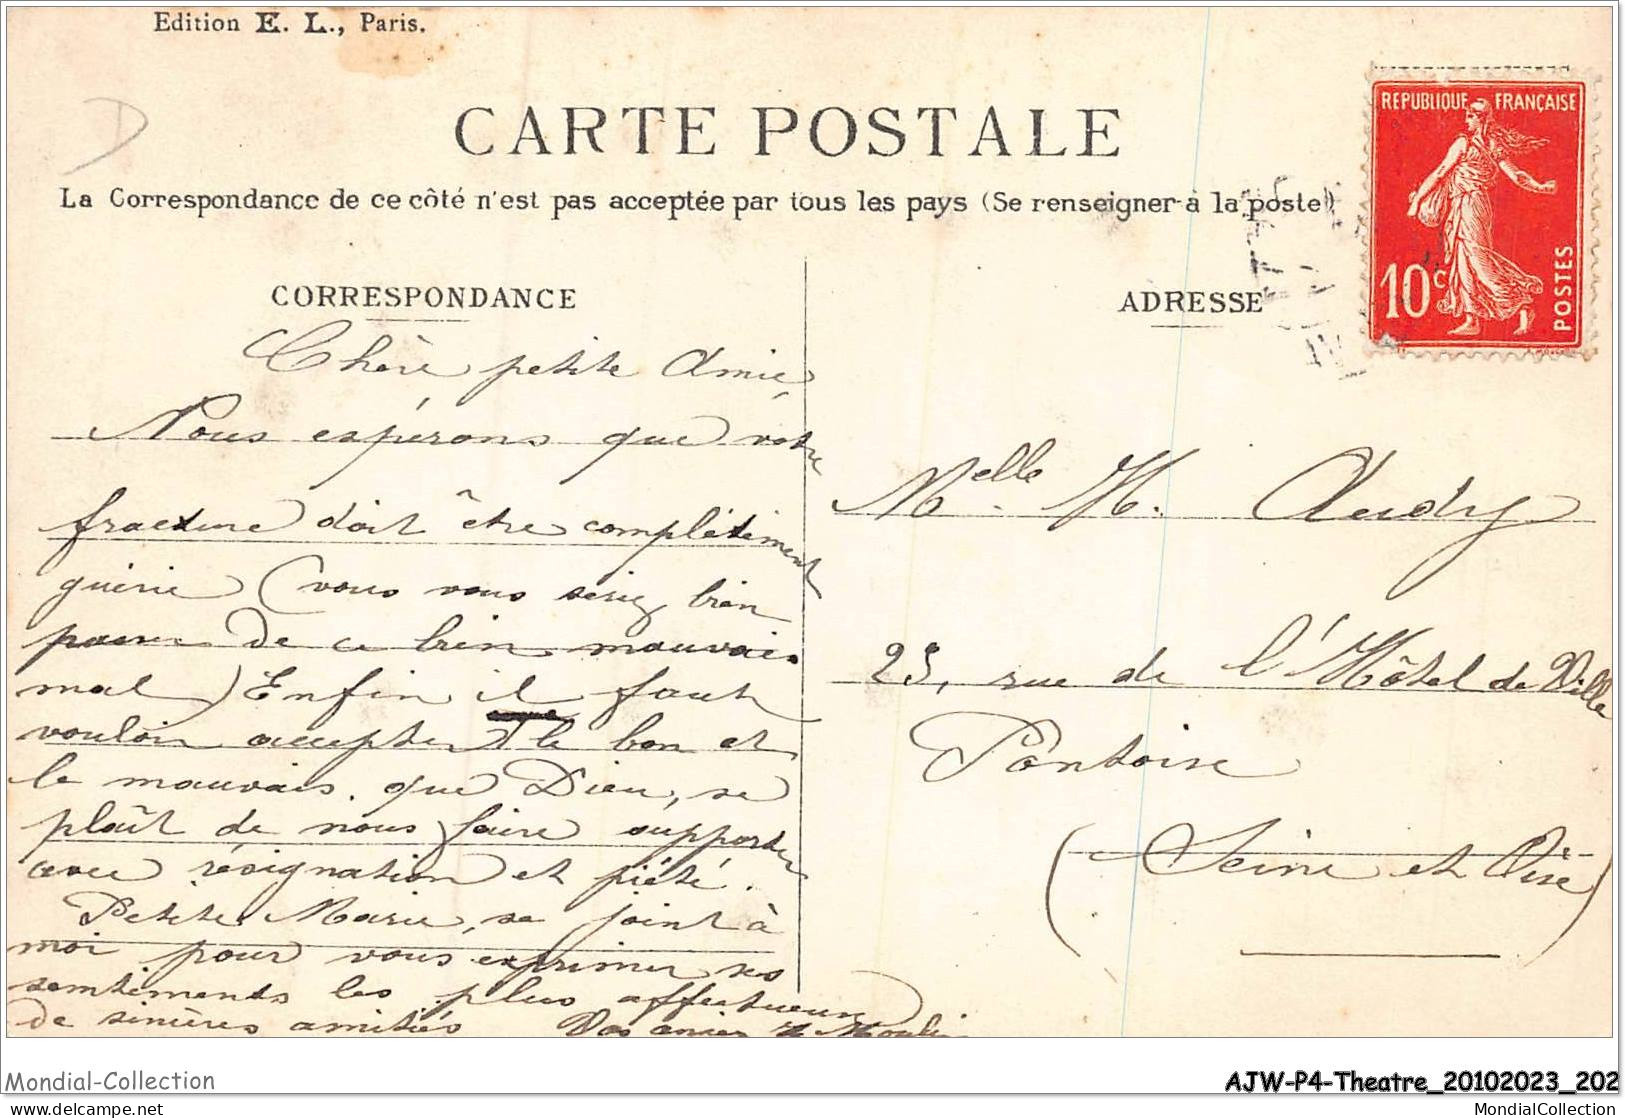 Edition E. L., Paris.
D
CARTE POSTALE
La Correspondance de ce côté n'est pas acceptée par tous les pays (Se renseigner à la poste)
REPUBLIQUE FRANÇAISE
10c
POSTES
CORRESPONDANCE
Chère petite Amie,
Nous espérons que votre
fracture doit être complètement
guérie (vous vous seriez bien
de ce brin mauvais
mal) Enfin il faut
vouloir accepter le bon et
le mauvais. que Dieu, se
plaît de nous faire supporter
avec résignation et piété.
Petite Marie, se joint à
moi pour vous exprimer ses
sentiments les plus affectueux
de sincères amitiés Vos amies Moulin
ADRESSE
Melle M. Audry
25, rue de l'Hôtel de Ville
Pontoise
(Seine et Oise)
Mondial-Collection
AJW-P4-Theatre_20102023_202
www.delcampe.net
MondialCollection